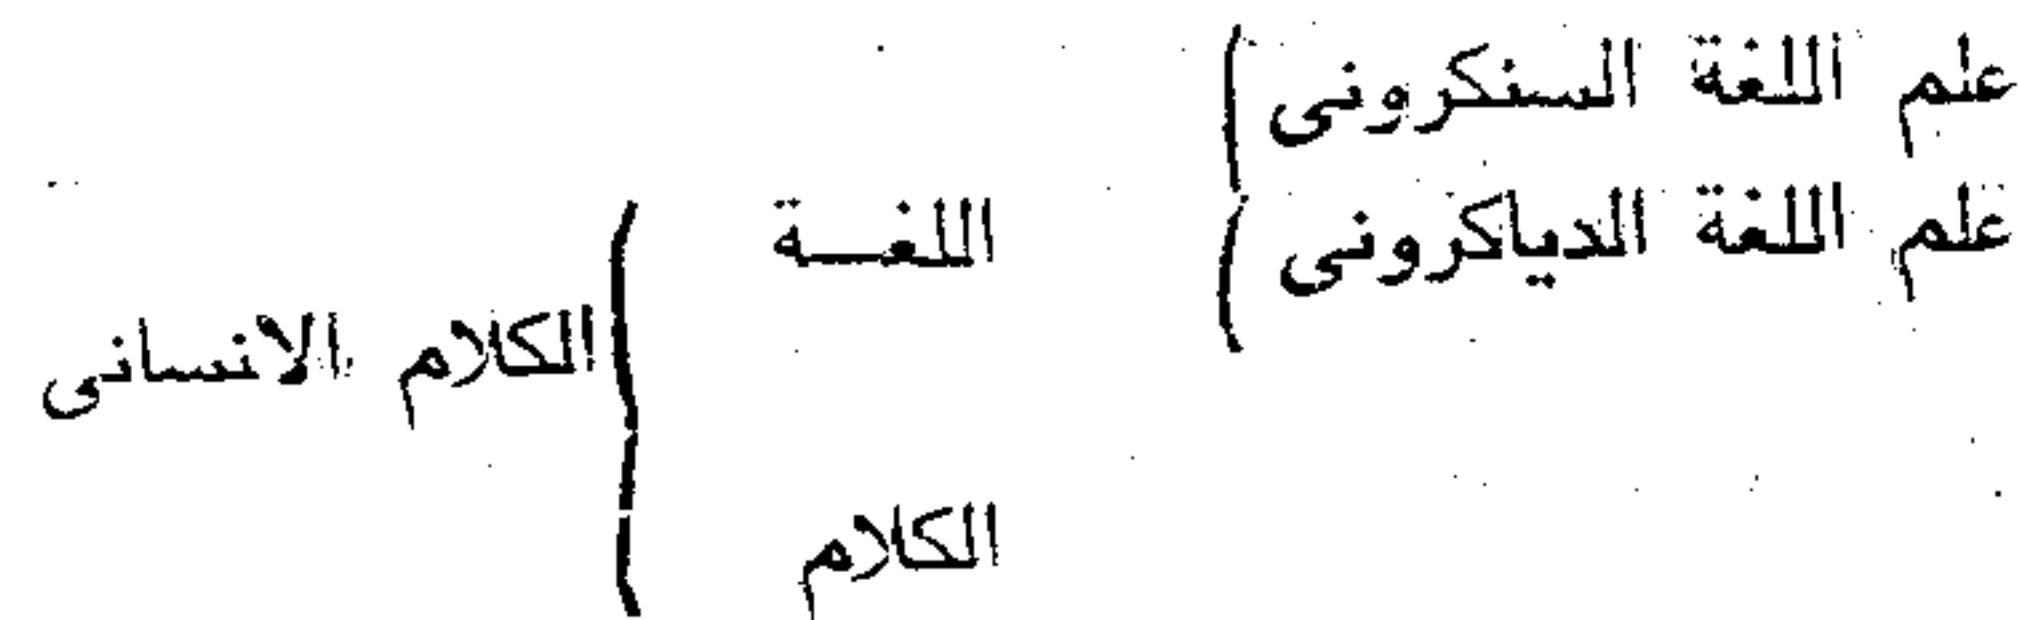 علم اللغة السنكرونى
علم اللغة الدياكرونى
اللغـــة
الكلام الانسانى
الكلام